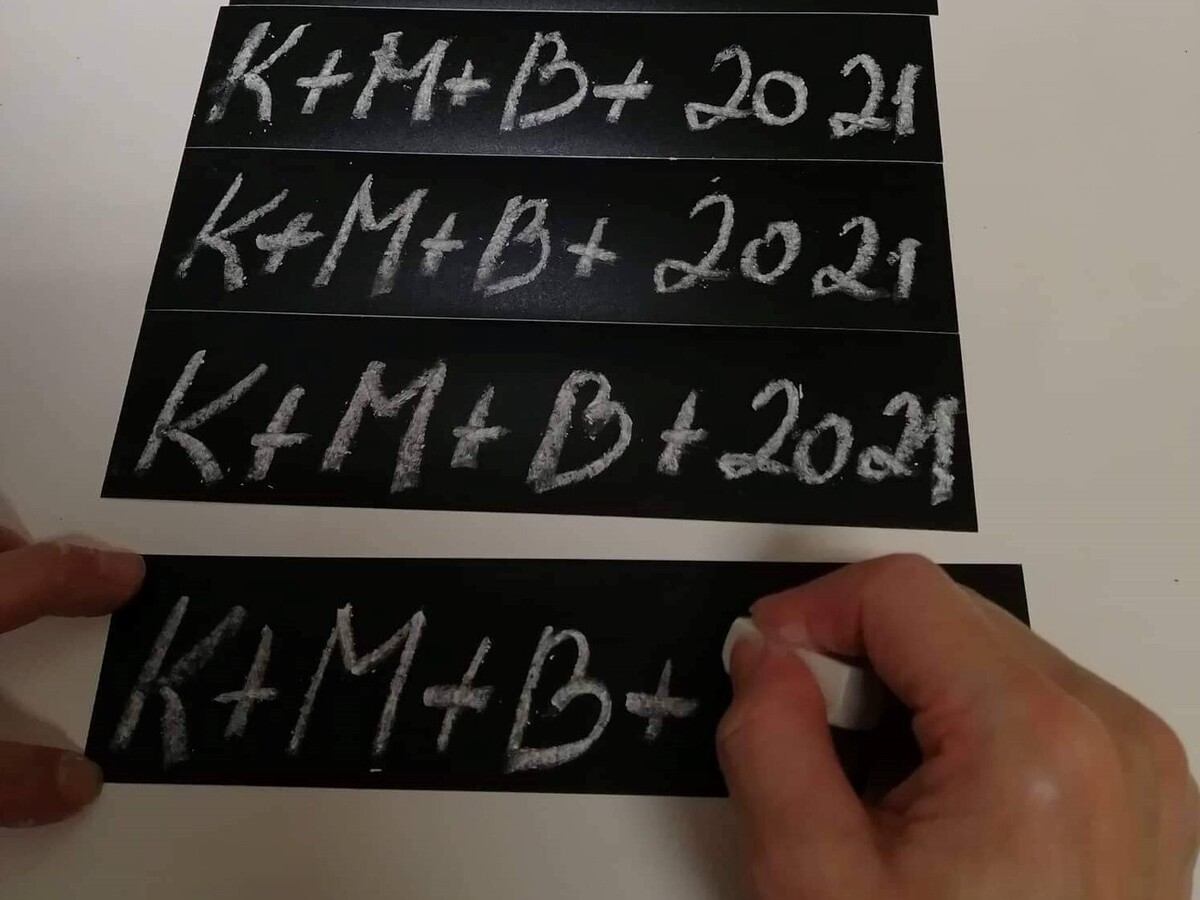 K+M+B+ 20 21
K+M+B+ 20 21
K+M+B+2021
K+M+B+